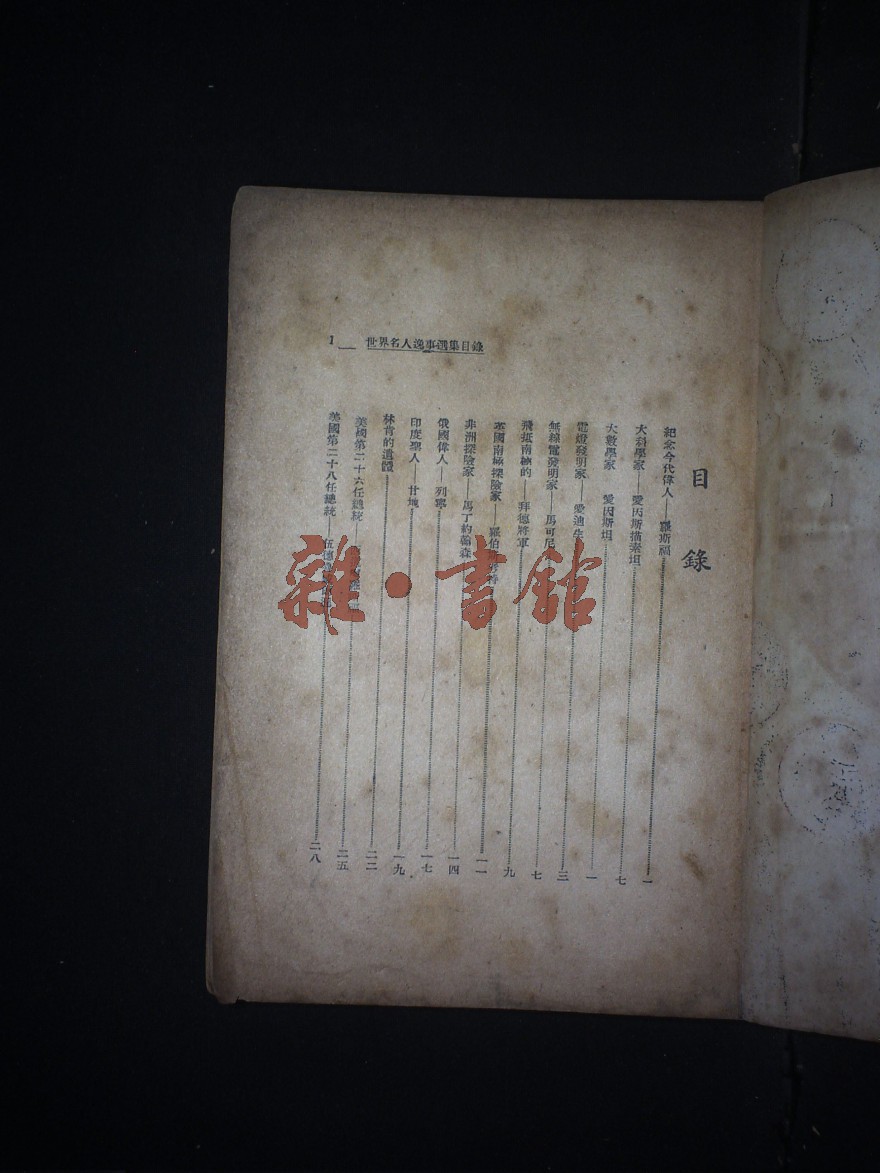 世界名人逸事選集目錄 1
目錄
紀念今代偉人——羅斯福 一
大科學家——愛因斯描素坦 七
大數學家 愛因斯坦 一
電燈發明家——愛迪生 三
無線電發明家 馬可尼 七
飛抵南極的——拜德將軍 九
英國南極探險家——羅伯 一一
非洲探險家 馬丁約翰森 一四
俄國偉人——列寧 一七
印度聖人——甘地 一九
林肯的遺體 二二
美國第二十六任總統 二五
美國第二十八任總統 伍德 二八
雜·書館